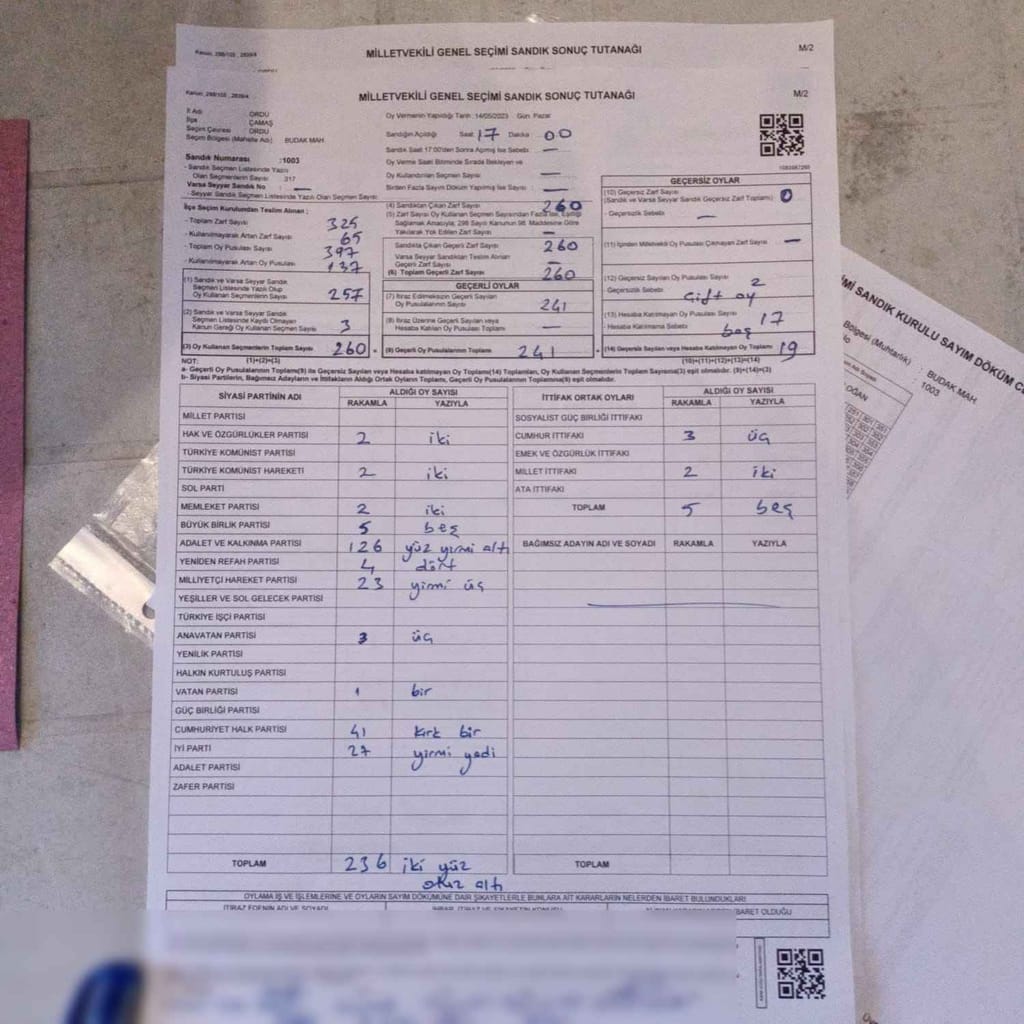 Kanun: 298/105 , 2839/4
MİLLETVEKİLİ GENEL SEÇİMİ SANDIK SONUÇ TUTANAĞI
M/2
Kanun: 298/105 , 2839/4
MİLLETVEKİLİ GENEL SEÇİMİ SANDIK SONUÇ TUTANAĞI
M/2
İl Adı : ORDU
İlçe : ÇAMAŞ
Seçim Çevresi : ORDU
Seçim Bölgesi (Mahalle Adı) : BUDAK MAH
Sandık Numarası :1003
- Sandık Seçmen Listesinde Yazılı
Olan Seçmenlerin Sayısı : 317
Varsa Seyyar Sandık No : —
- Seyyar Sandık Seçmen Listesinde Yazılı Olan Seçmen Sayısı
İlçe Seçim Kurulundan Teslim Alınan ;
- Toplam Zarf Sayısı 325
- Kullanılmayarak Artan Zarf Sayısı 65
- Toplam Oy Pusulası Sayısı 397
- Kullanılmayarak Artan Oy Pusulası 137
(1) Sandık ve Varsa Seyyar Sandık
Seçmen Listesinde Yazılı Olup
Oy Kullanan Seçmenlerin Sayısı 257
(2) Sandık ve Varsa Seyyar Sandık
Seçmen Listesinde Kayıtlı Olmayan
Kanun Gereği Oy Kullanan Seçmen Sayısı 3
(3) Oy Kullanan Seçmenlerin Toplam Sayısı 260
Oy Vermenin Yapıldığı Tarih : 14/05/2023 Gün: Pazar
Sandığın Açıldığı Saat: 17 Dakika : 00
Sandık Saat 17:00'den Sonra Açılmış İse Sebebi : —
Oy Verme Saati Bitiminde Sırada Bekleyen ve
Oy Kullandırılan Seçmen Sayısı —
Birden Fazla Sayım Döküm Yapılmış İse Sayısı : —
(4) Sandıktan Çıkan Zarf Sayısı 260
(5) Zarf Sayısı Oy Kullanan Seçmen Sayısından Fazla İse, Eşitliği
Sağlamak Amacıyla; 298 Sayılı Kanunun 98. Maddesine Göre
Yakılarak Yok Edilen Zarf Sayısı —
Sandıkta Çıkan Geçerli Zarf Sayısı 260
Varsa Seyyar Sandıktan Teslim Alınan
Geçerli Zarf Sayısı —
(6) Toplam Geçerli Zarf Sayısı 260
GEÇERLİ OYLAR
(7) İtiraz Edilmeksizin Geçerli Sayılan
Oy Pusulalarının Sayısı 241
(8) İtiraz Üzerine Geçerli Sayılan veya
Hesaba Katılan Oy Pusulası Toplamı —
(9) Geçerli Oy Pusulalarının Toplamı 241
GEÇERSİZ OYLAR
(10) Geçersiz Zarf Sayısı
(Sandık ve Varsa Seyyar Sandık Geçersiz Zarf Toplamı) 0
- Geçersizlik Sebebi —
(11) İçinden Milletvekili Oy Pusulası Çıkmayan Zarf Sayısı —
(12) Geçersiz Sayılan Oy Pusulası Sayısı 2
- Geçersizlik Sebebi Çift oy
(13) Hesaba Katılmayan Oy Pusulası Sayısı 17
- Hesaba Katılmama Sebebi boş
(14) Geçersiz Sayılan veya Hesaba Katılmayan Oy Toplamı 19
NOT: (1)+(2)=(3) (10)+(11)+(12)+(13)=(14)
a- Geçerli Oy Pusulalarının Toplamı(9) ile Geçersiz Sayılan veya Hesaba katılmayan Oy Toplamı(14) Toplamları, Oy Kullanan Seçmenlerin Toplam Sayısına(3) eşit olmalıdır. (9)+(14)=(3)
b- Siyasi Partilerin, Bağımsız Adayların ve İttifakların Aldığı Ortak Oyların Toplamı, Geçerli Oy Pusulalarının Toplamına(9) eşit olmalıdır.
SİYASİ PARTİNİN ADI ALDIĞI OY SAYISI
RAKAMLA YAZIYLA
MİLLET PARTISI
HAK VE ÖZGÜRLÜKLER PARTİSİ 2 iki
TÜRKİYE KOMÜNİST PARTİSİ
TÜRKİYE KOMÜNİST HAREKETİ 2 iki
SOL PARTİ
MEMLEKET PARTİSİ 2 iki
BÜYÜK BİRLİK PARTİSİ 5 beş
ADALET VE KALKINMA PARTİSİ 126 yüz yirmi altı
YENİDEN REFAH PARTİSİ 4 dört
MİLLİYETÇİ HAREKET PARTİSİ 23 yirmi üç
YEŞİLLER VE SOL GELECEK PARTİSİ
TÜRKİYE İŞÇİ PARTİSİ
ANAVATAN PARTİSİ 3 üç
YENİLİK PARTİSİ
HALKIN KURTULUŞ PARTİSİ
VATAN PARTİSİ 1 bir
GÜÇ BİRLİĞİ PARTİSİ
CUMHURİYET HALK PARTİSİ 41 kırk bir
İYİ PARTİ 27 yirmi yedi
ADALET PARTİSİ
ZAFER PARTİSİ
TOPLAM 236 iki yüz
otuz altı
İTTİFAK ORTAK OYLARI ALDIĞI OY SAYISI
RAKAMLA YAZIYLA
SOSYALIST GÜÇ BİRLİĞİ İTTİFAKI
CUMHUR İTTİFAKI 3 üç
EMEK VE ÖZGÜRLÜK İTTİFAKI
MİLLET İTTİFAKI 2 iki
ATA İTTİFAKI
TOPLAM 5 beş
BAĞIMSIZ ADAYIN ADI VE SOYADI RAKAMLA YAZIYLA
TOPLAM
OYLAMA İŞ VE İŞLEMLERİNE VE OYLARIN SAYIM DÖKÜMÜNE DAİR ŞİKAYETLERLE BUNLARA AİT KARARLARIN NELERDEN İBARET BULUNDUKLARI
İTİRAZ EDENİN ADI VE SOYADI
İBARET OLDUĞU
SANDIK KURULU SAYIM DÖKÜM
Bölgesi (Muhtarlık) : BUDAK MAH
No : 1003